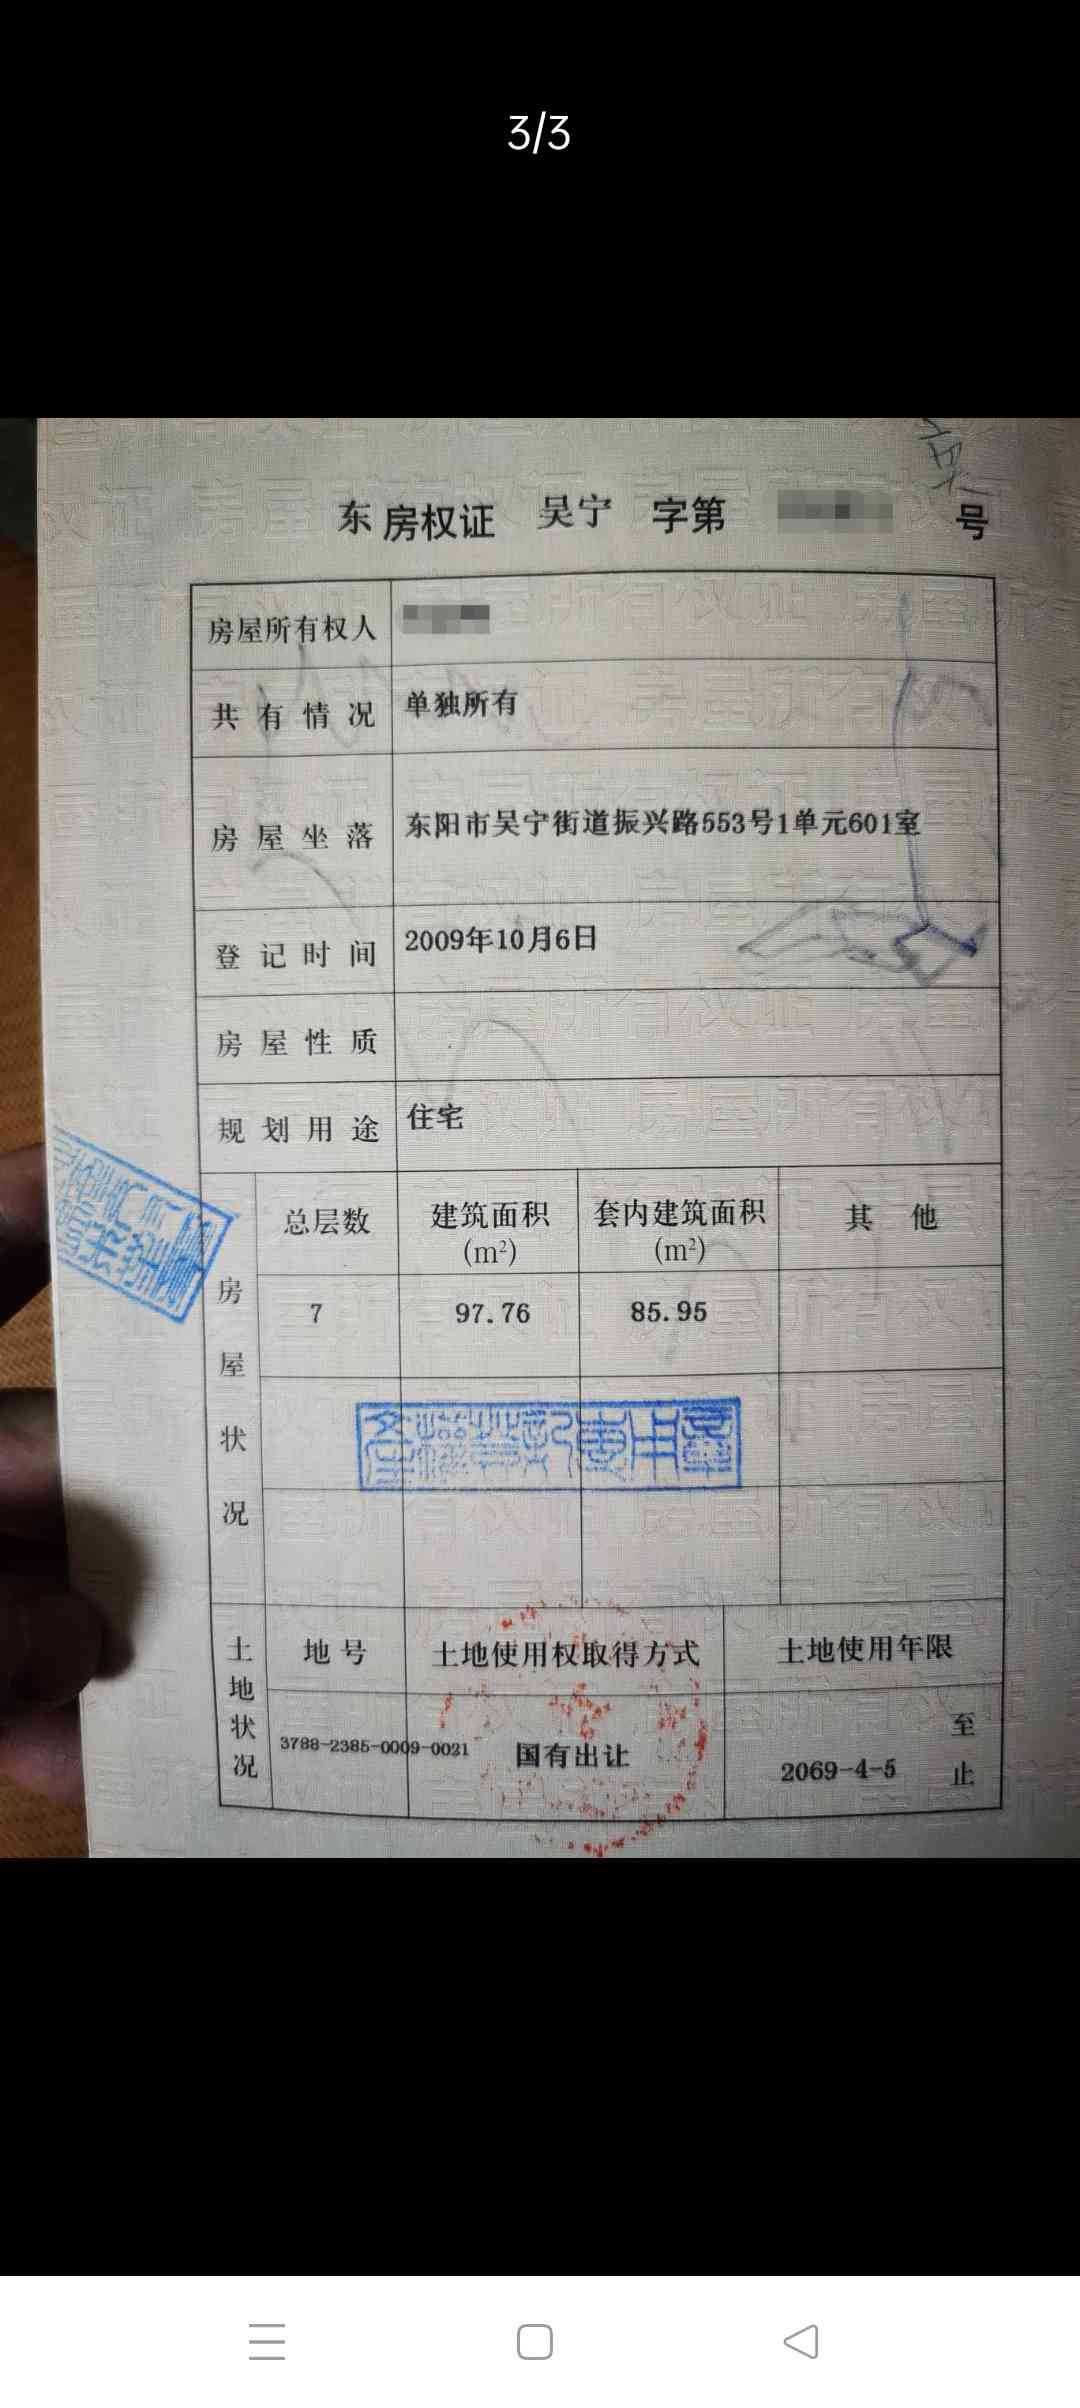 3/3
东房权证 吴宁 字第 号
房屋所有权人
共有情况 单独所有
房屋坐落 东阳市吴宁街道振兴路553号1单元601室
登记时间 2009年10月6日
房屋性质
规划用途 住宅
房屋状况
总层数 建筑面积(m²) 套内建筑面积(m²) 其他
7 97.76 85.95
土地状况
地号 土地使用权取得方式 土地使用年限
3788-2385-0009-0021 国有出让 至
2069-4-5 止